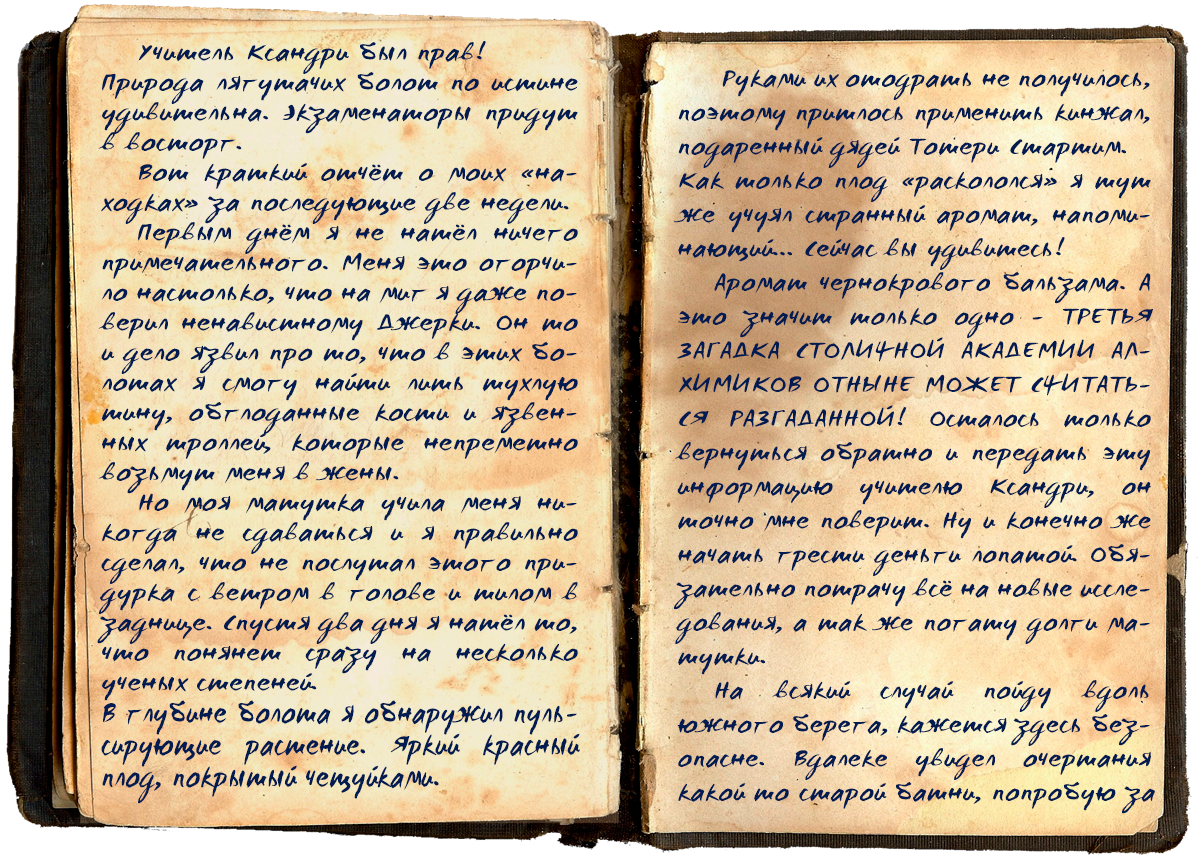 Учитель Ксандри был прав!
Природа лягушачих болот по истине
удивительна. Экзаменаторы придут
в восторг.
Вот краткий отчёт о моих «на-
ходках» за последующие две недели.
Первым днём я не нашёл ничего
примечательного. Меня это огорчи-
ло настолько, что на миг я даже по-
верил ненавистному Джерки. Он то
и дело язвил про то, что в этих бо-
лотах я смогу найти лишь тухлую
тину, обглоданные кости и язвен-
ных троллец, которые непреметно
возьмут меня в жены.
Но моя матушка учила меня ни-
когда не сдаваться и я правильно
сделал, что не послушал этого при-
дурка с ветром в голове и шилом в
заднице. Спустя два дня я нашёл то,
что понянет сразу на несколько
ученых степеней.
В глубине болота я обнаружил пуль-
сирующие растение. Яркий красный
плод, покрытый чешуйками.
Руками их отодрать не получилось,
поэтому пришлось применить кинжал,
подаренный дядей Тошери Старшим.
Как только плод «раскололся» я тут
же учуял странный аромат, напоми-
нающий... Сейчас вы удивитесь!
Аромат чернокрового бальзама. А
это значит только одно - ТРЕТЬЯ
ЗАГАДКА СТОЛИЧНОЙ АКАДЕМИИ АЛ-
ХИМИКОВ ОТНЫНЕ МОЖЕТ СЧИТАТЬ-
СЯ РАЗГАДАННОЙ! Осталось только
вернуться обратно и передать эту
информацию учителю Ксандри, он
точно мне поверит. Ну и конечно же
начать грести деньги лопатой. Обя-
зательно потрачу всё на новые иссле-
дования, а так же погашу долги ма-
тушки.
На всякий случай пойду вдоль
южного берега, кажется здесь без-
опасне. Вдалеке увидел очертания
какой то старой башни, попробую за